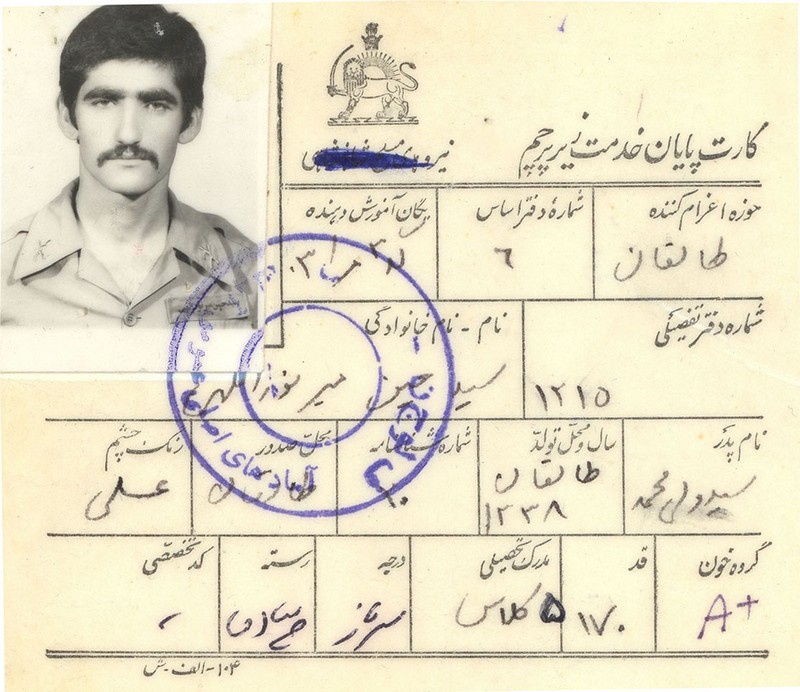 کارت پایان خدمت زیر پرچم
حوزه اعزام کننده
شمارهٔ دفتر اساس
یگان آموزش دهنده
طالقان
۶
شماره دفتر تفصیلی
نام - نام خانوادگی
۱۲۱۵
سید حسین میر
نام پدر
سال و محل تولد
شماره شناسنامه
محل صدور
رنگ چشم
سید ولی محمد
طالقان
۱۳۳۸
۱۰
طالقان
عسلی
گروه خون
قد
مدرک تحصیلی
درجه
رسته
کد تخصصی
A+
۱۷۰
۵ کلاس
سرباز
۱۰۴-الف-ش